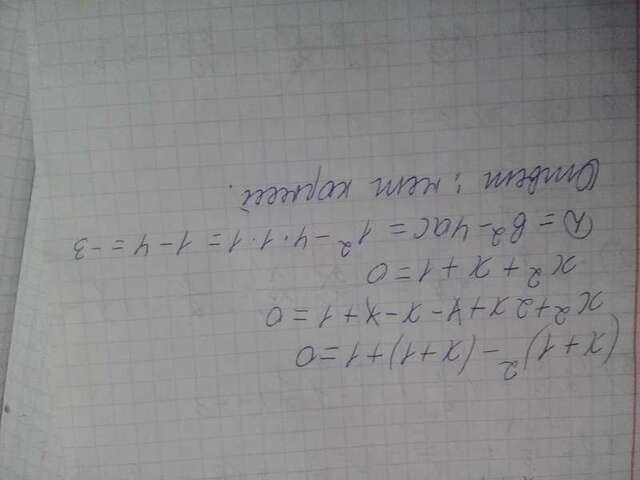 (x+1)² - (x+1)+1=0
x²+2x+1-x-1+1=0
x²+x+1=0
D=b²-4ac=1²-4·1·1=1-4=-3
Ответ: нет корней.